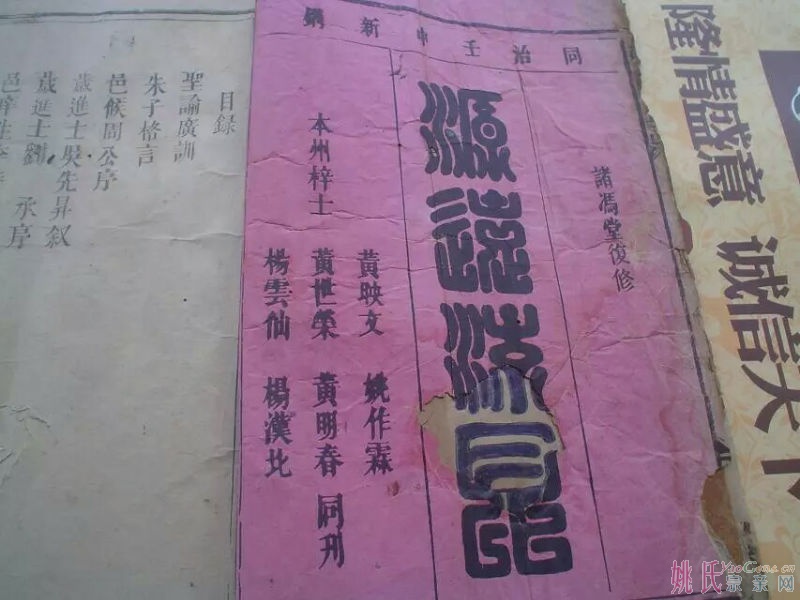 隆情盛意 诚信天下
同治壬申新鐫
諸馮堂復修
源遠流長
黃映文 姚作霖
本州梓士 黃世榮 黃明春 同刊
楊雲仙 楊漢北
目錄
聖諭廣訓
朱子格言
邑候周公序
歲進士吳先昇叙
歲進士劉 承序
邑庠生李
姚氏